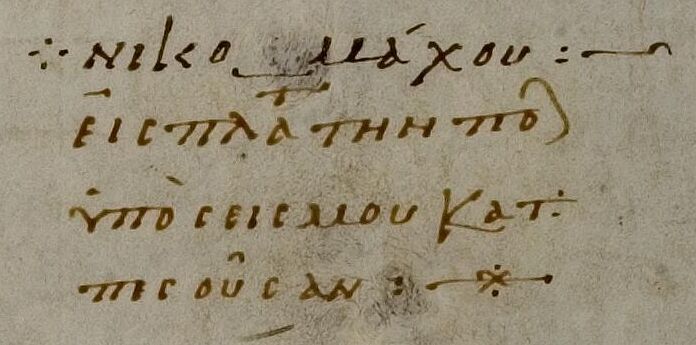 ⁘ νικο_μάχου :—
εἰς πλατ̅ τὴν πολ
ὑπὸ σεισμου κατ :
πεσοῦσαν : —※—